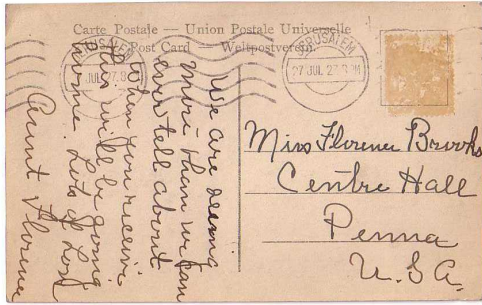 Carte Postale — Union Postale Universelle
Post Card — Weltpostverein
JERUSALEM
27 JUL 27. 8 PM
JERUSALEM
JUL 27. 8
We are seeing
more than we can
ever tell about
When you receive
this will be going
home. Lots of Love
Aunt Florence
Miss Florence Brooks
Centre Hall
Penna
U.S.A.